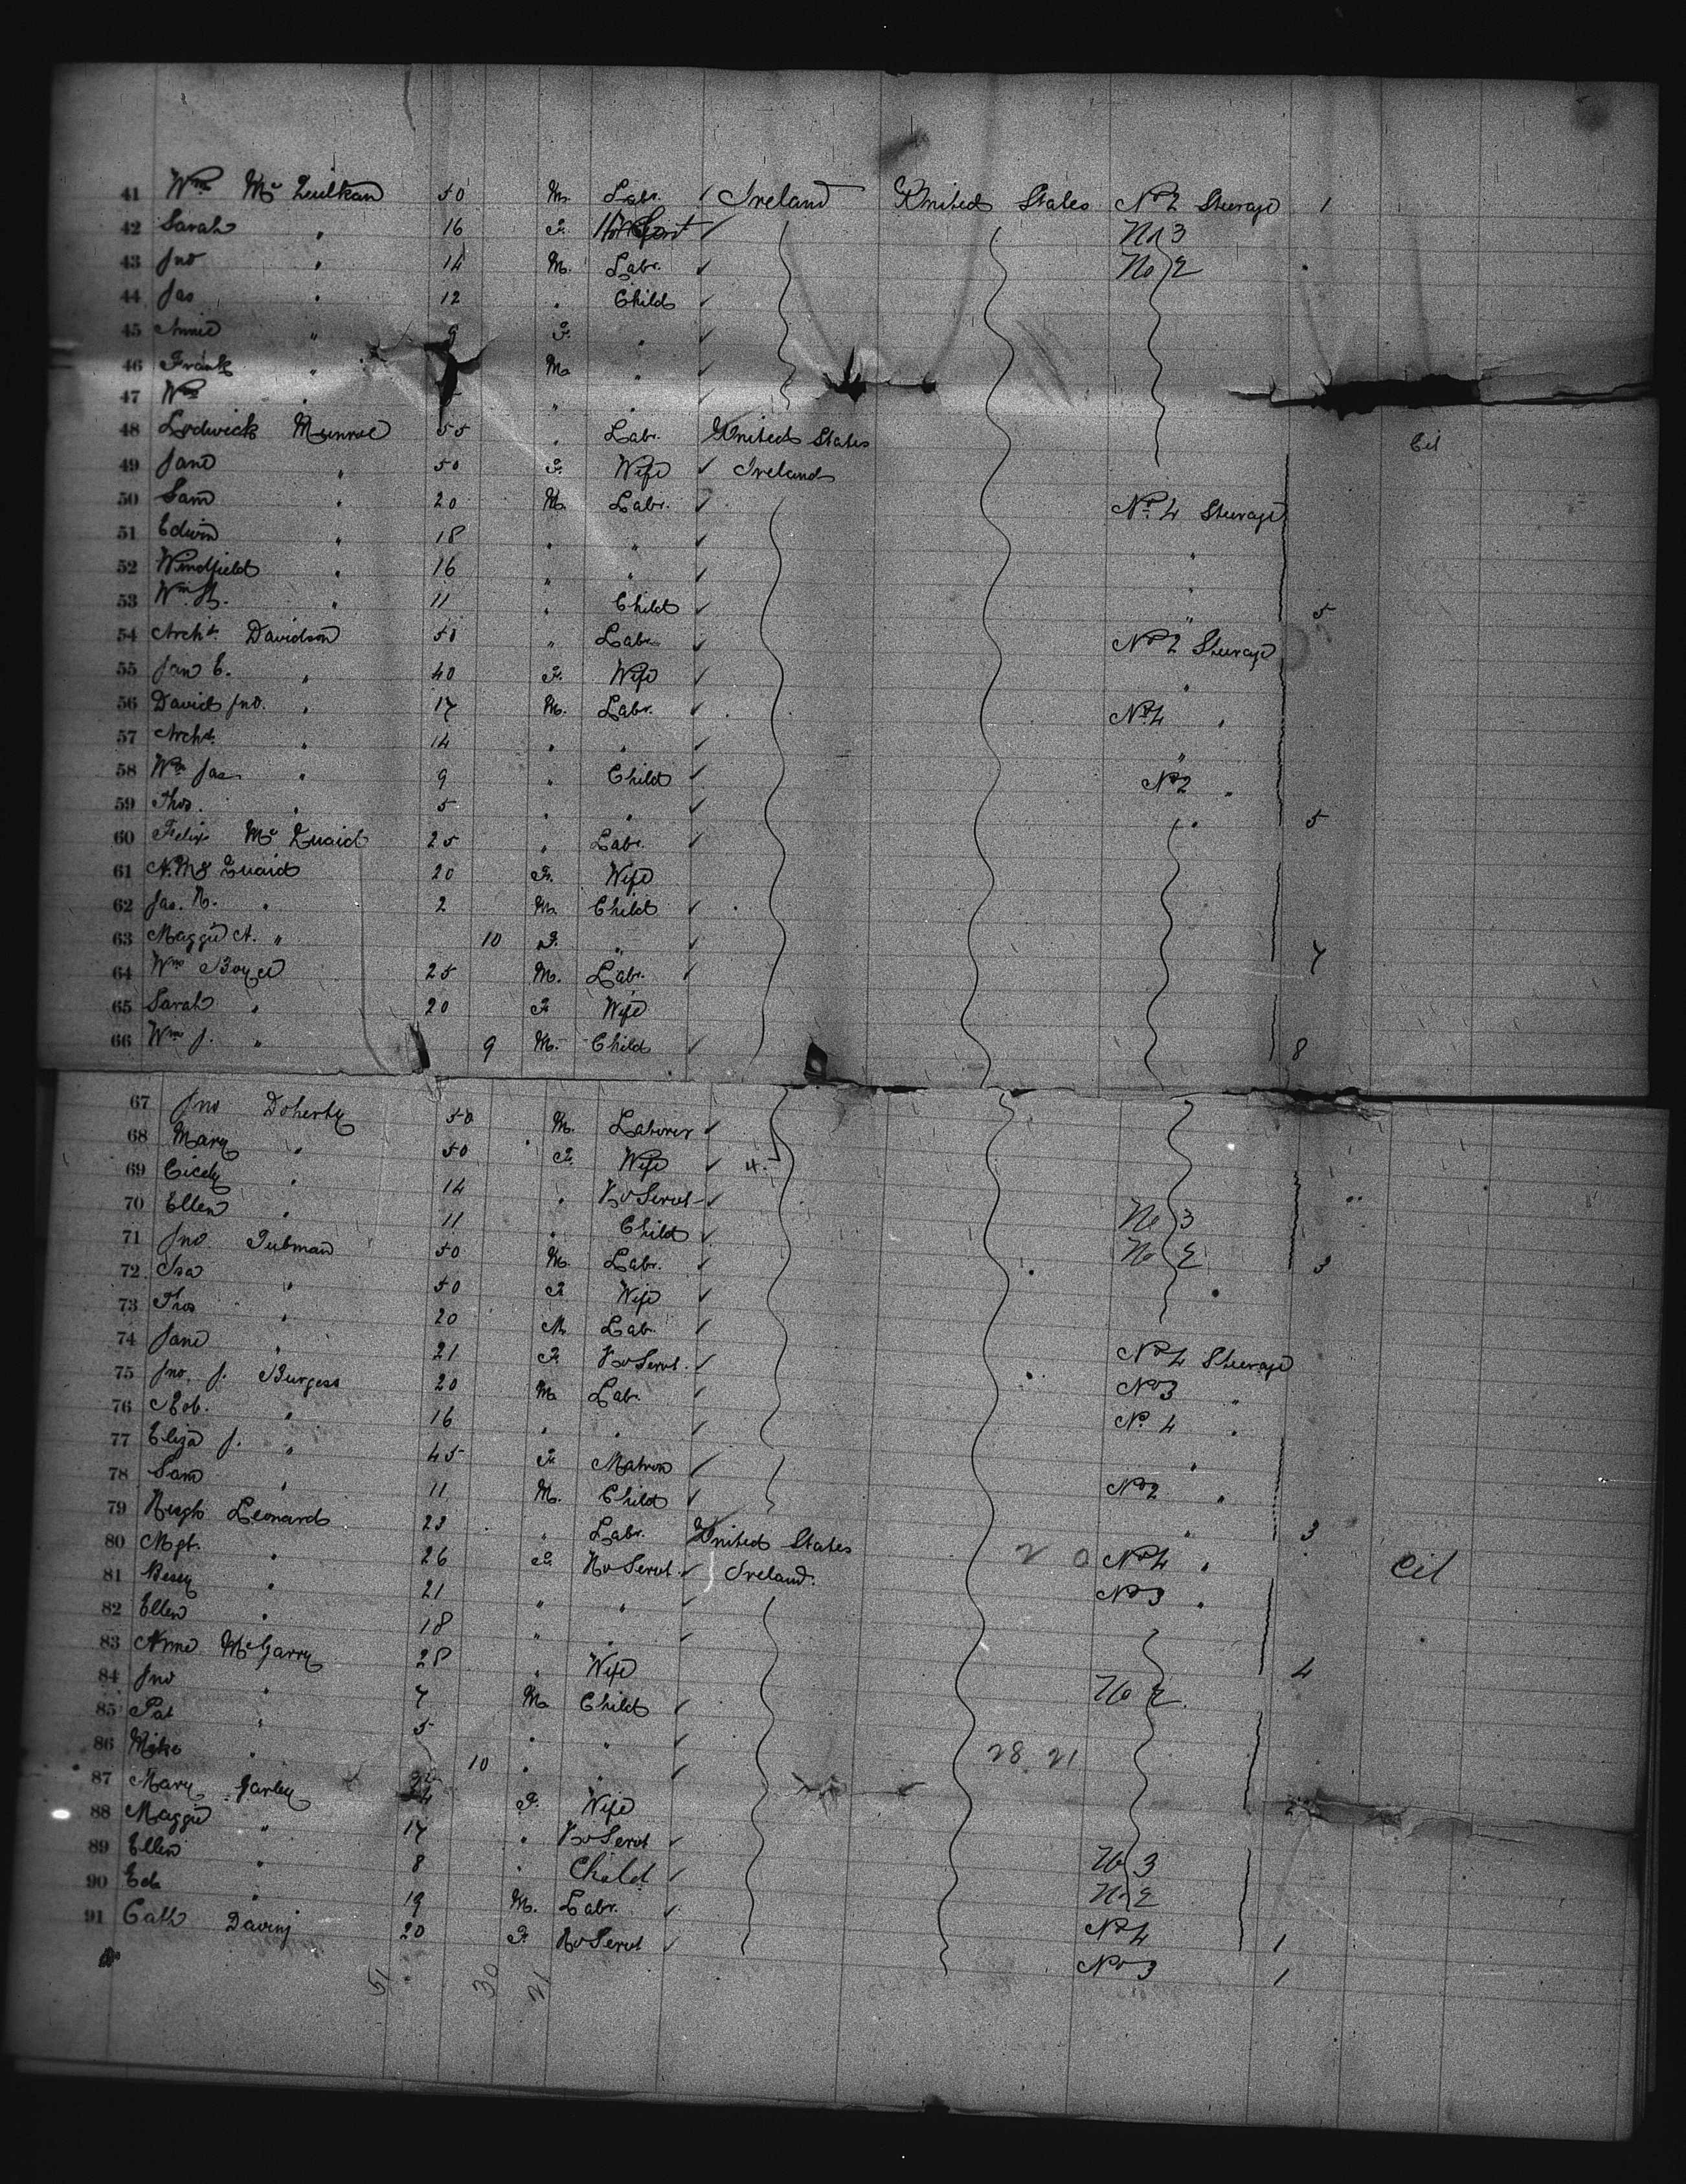 41 Wm Mc Quilkan 50 M. Labr. ✓ Ireland United States No 2 Steerage 1
42 Sarah " 16 F. ✓ No 3
43 Jno " 14 M. Labr. ✓ No 2
44 Jas " 12 " Child ✓
45 Annie " 9 F. " ✓
46 Frank " M. " ✓
47 Wm " " " ✓
48 Lodwick Munroe 55 " Labr. United States Cit
49 Jane " 50 F. Wife ✓ Ireland
50 Sam " 20 M. Labr. ✓ No 4 Steerage
51 Edwin " 18 " " ✓ "
52 Windfield " 16 " " ✓ "
53 Wm H. " 11 " Child ✓ " 5
54 Archd. Davidson 50 " Labr. ✓ No 2 Steerage
55 Jan E. " 40 F. Wife ✓ "
56 David Jno. " 17 M. Labr. ✓ No 4 "
57 Archd. " 14 " " ✓ "
58 Wm Jas " 9 " Child ✓ No 2 "
59 Thos. " 5 " " ✓ " 5
60 Felix Mc Quaid 25 " Labr. ✓
61 N. Mc Quaid 20 F. Wife
62 Jas. N. " 2 M. Child ✓
63 Maggie A. " 10 F. " ✓ 7
64 Wm Boyce 25 M. Labr. ✓
65 Sarah " 20 F. Wife
66 Wm J. " 9 M. Child ✓ 8
67 Jno Doherty 50 M. Laborer ✓
68 Mary " 50 F. Wife ✓ 4.
69 Cicely " 14 " Ho Servt ✓
70 Ellen " 11 " Child ✓ No 3
71 Jno Tubman 50 M. Labr. ✓ No 2 3
72 Isa " 50 F. Wife ✓
73 Thos " 20 M. Lab. ✓
74 Jane " 21 F. Ho Servt. ✓ No 4 Steerage
75 Jno. J. Burgess 20 M. Lab. ✓ No 3 "
76 Rob. " 16 " " ✓ No 4 "
77 Eliza J. " 45 F. Matron ✓ "
78 Sam " 11 M. Child ✓ No 2 "
79 Hugh Leonard 23 " Labr. United States " 3
80 Mgt. " 26 F. Ho Servt. ✓ Ireland. 2 0 No 4 " Cit
81 Bessy " 21 " " ✓ No 3 "
82 Ellen " 18 " " ✓
83 Anne McGarry 28 " Wife 4
84 Jno " 7 M. Child ✓ No 2
85 Pat " 5 " " ✓
86 Mike " 10 " " ✓ 28 21
87 Mary Garley F. Wife 2
88 Maggie " 17 " Ho Servt ✓
89 Ellen " 8 " Child ✓ No 3
90 Ed. " 19 M. Labr. ✓ No 2
91 Cath 20 F. Ho Servt ✓ No 4 1
No 3 1
51 30 21